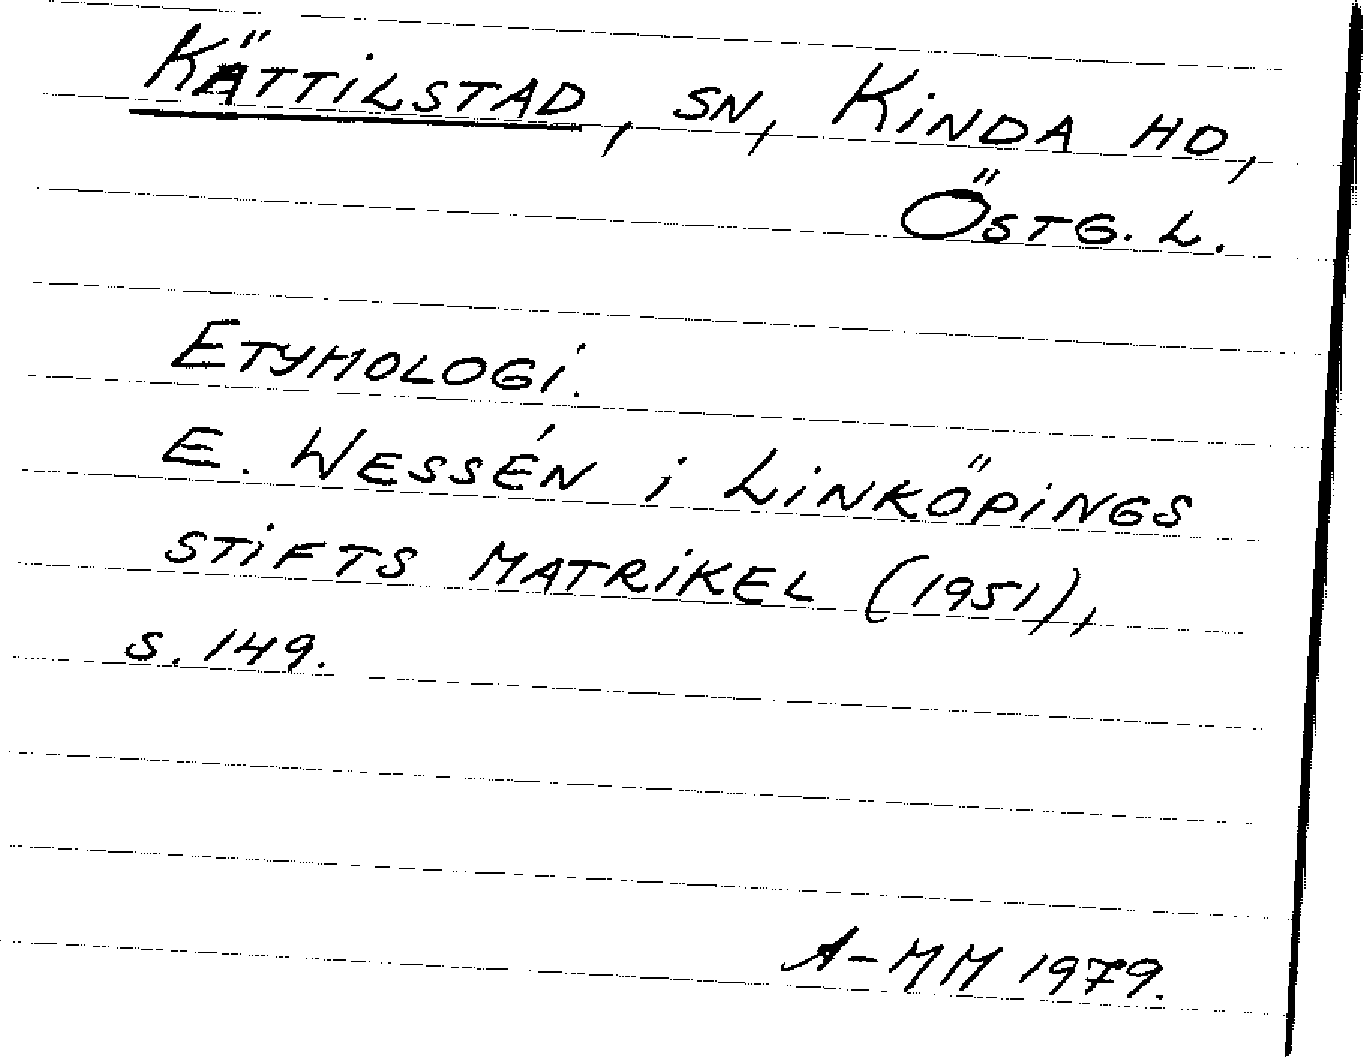 KÄTTILSTAD, SN, KINDA HD,
ÖSTG. L.
ETYMOLOGI.
E. WESSÉN i LINKÖPINGS
STIFTS MATRIKEL (1951),
S. 149.
A-MM 1979.